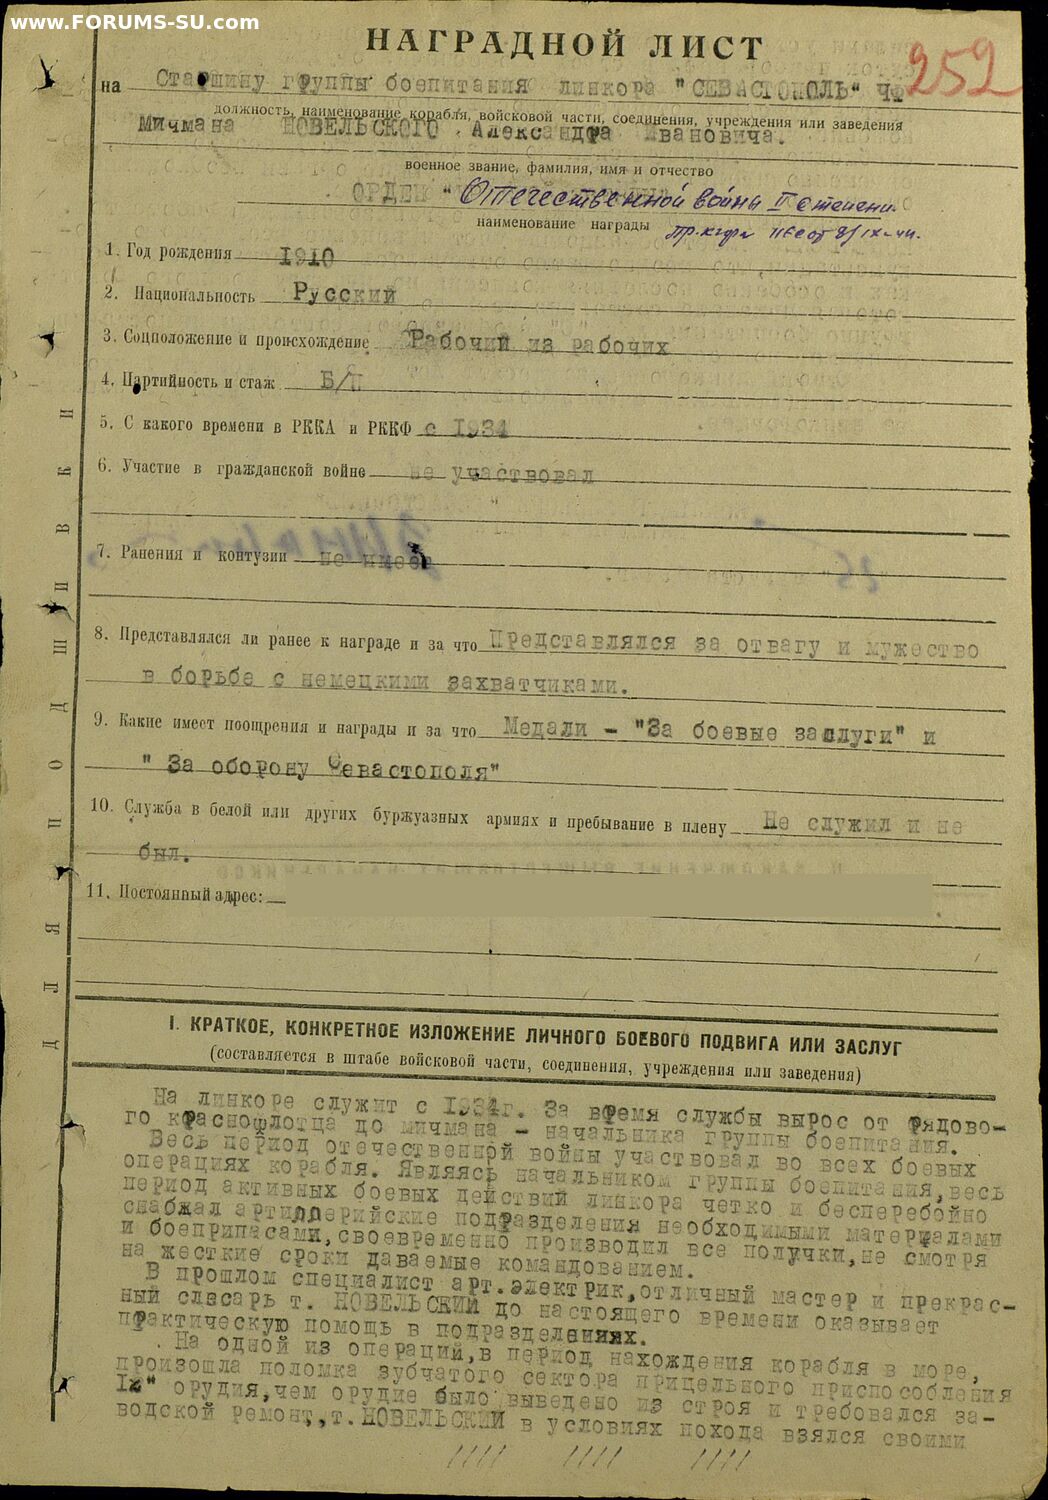 www.FORUMS-SU.com
НАГРАДНОЙ ЛИСТ
252
на Старшину группы боепитания линкора "СЕВАСТОПОЛЬ" ЧФ
должность, наименование корабля, войсковой части, соединения, учреждения или заведения
Мичмана НОВЕЛЬСКОГО Александра Ивановича.
военное звание, фамилия, имя и отчество
ОРДЕН "Отечественной войны II степени.
наименование награды
1. Год рождения 1910
2. Национальность Русский
3. Соцположение и происхождение Рабочий из рабочих
4. Партийность и стаж Б/П
5. С какого времени в РККА и РККФ с 1934
6. Участие в гражданской войне не участвовал
7. Ранения и контузии не имеет
8. Представлялся ли ранее к награде и за что Представлялся за отвагу и мужество
в борьбе с немецкими захватчиками.
9. Какие имеет поощрения и награды и за что Медали - "За боевые заслуги" и
" За оборону Севастополя"
10. Служба в белой или других буржуазных армиях и пребывание в плену Не служил и не
был.
11. Постоянный адрес:
ДЛЯ ПОДШИВКИ
I. КРАТКОЕ, КОНКРЕТНОЕ ИЗЛОЖЕНИЕ ЛИЧНОГО БОЕВОГО ПОДВИГА ИЛИ ЗАСЛУГ
(составляется в штабе войсковой части, соединения, учреждения или заведения)
На линкоре служит с 1934г. За время службы вырос от рядово-
го краснофлотца до мичмана - начальника группы боепитания.
Весь период отечественной войны участвовал во всех боевых
операциях корабля. Являясь начальником группы боепитания, весь
период активных боевых действий линкора четко и бесперебойно
снабжал артиллерийские подразделения необходимыми материалами
и боеприпасами, своевременно производил все получки, не смотря
на жесткие сроки даваемые командованием.
В прошлом специалист арт.электрик, отличный мастер и прекрас-
ный слесарь т. НОВЕЛЬСКИЙ до настоящего времени оказывает
практическую помощь в подразделениях.
На одной из операций, в период нахождения корабля в море,
произошла поломка зубчатого сектора прицельного приспособления
орудия, чем орудие было выведено из строя и требовался за-
водской ремонт, т. НОВЕЛЬСКИЙ в условиях похода взялся своими